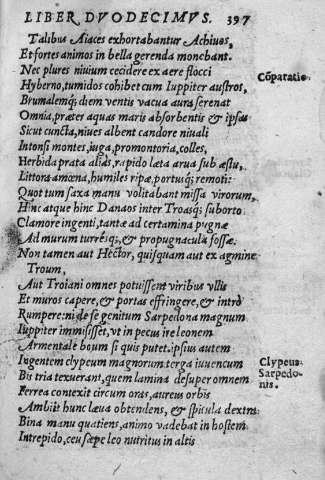 LIBER DVODECIMVS. 397
Talibus Aiaces exhortabantur Achiuos,
Et fortes animos in bella gerenda monebant.
Nec plures niuium cecidere ex aere flocci
Cōparatio.
Hyberno, tumidos cohibet cum Iuppiter austros,
Brumalemq; diem ventis vacua aura serenat
Omnia, præter aquas maris absorbentis & ipsas
Sicut cuncta, niues albent candore niuali
Intonsi montes, iuga, promontoria, colles,
Herbida prata alias, rapido læta arua sub æstu,
Littora amœna, humiles ripæ, portusq; remoti:
Quot tum saxa manu volitabant missa virorum,
Hinc atque hinc Danaos inter Troasq; suborto
Clamore ingenti, tantæ ad certamina pugnæ
Ad murum turreisq;, & propugnacula fossæ.
Non tamen aut Hector, quisquam aut ex agmine
Troum,
Aut Troiani omnes potuissent viribus vllis
Et muros capere, & portas effringere, & intro
Rumpere: ni de se genitum Sarpedona magnum
Iuppiter immisisset, vt in pecus ire leonem
Armentale boum si quis putet. ipsius autem
Ingentem clypeum magnorum terga iuuencum
Clypeus
Sarpedo-
nis.
Bis tria texuerant, quem lamina desuper omnem
Ferrea contexit circum oras, aureus orbis
Ambiit hunc læua obtendens, & spicula dextra
Bina manu quatiens, animo vadebat in hostem
Intrepido, ceu sæpe leo nutritus in altis